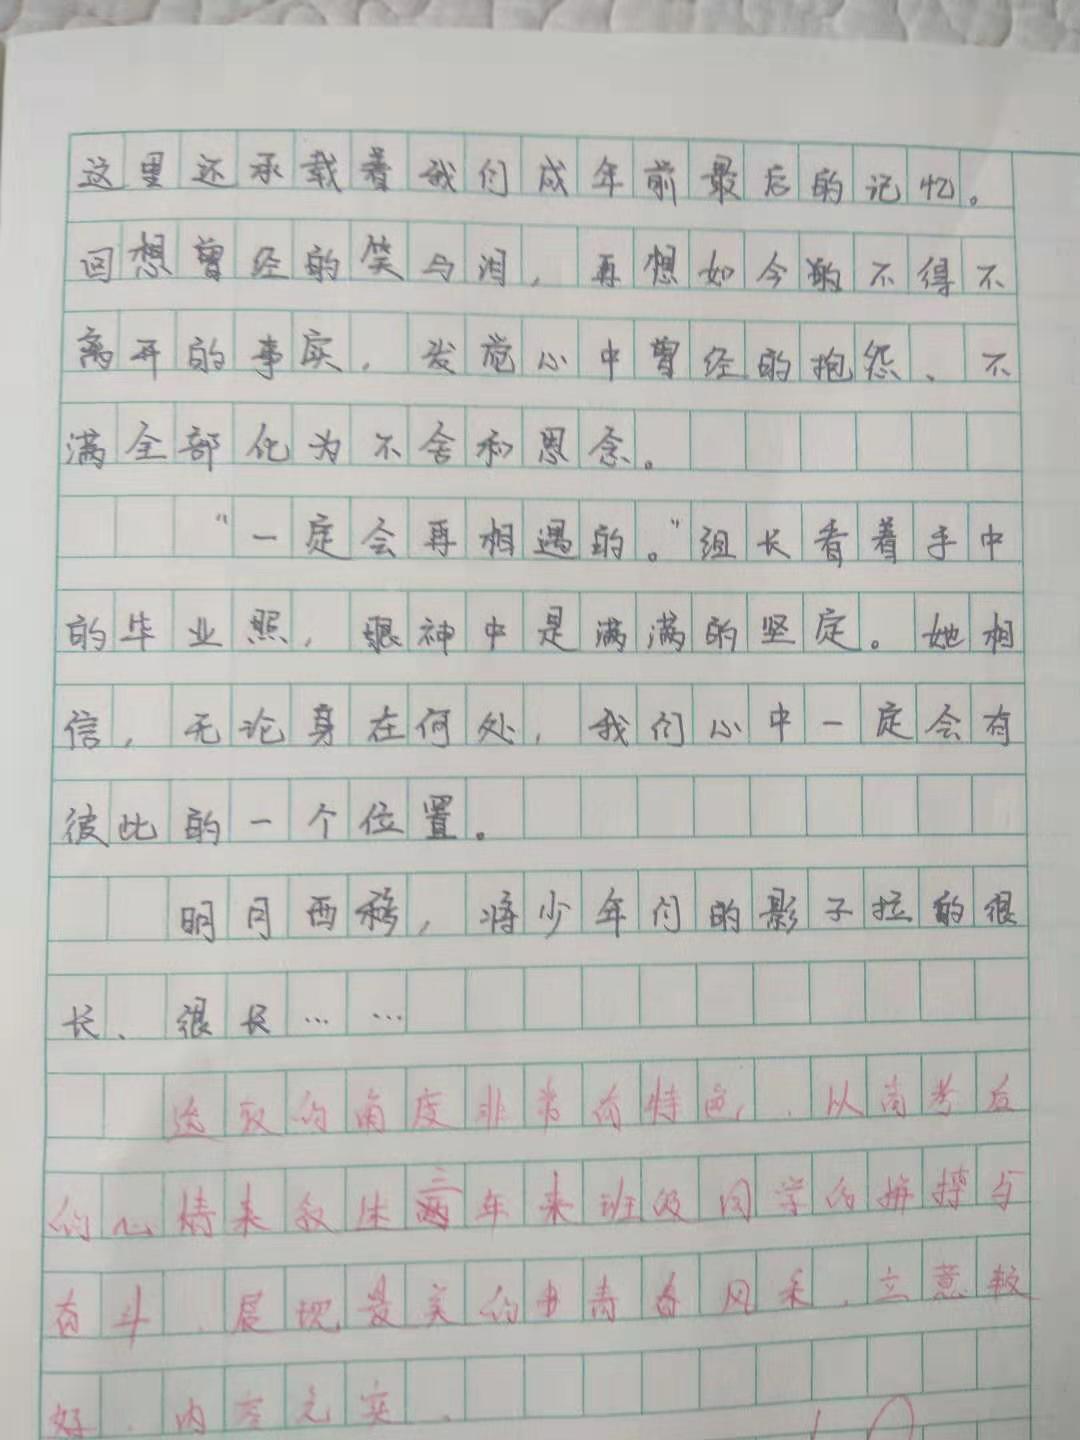 这里还承载着我们成年前最后的记忆。
回想曾经的笑与泪,再想如今的不得不
离开的事实,发觉心中曾经的抱怨、不
满全部化为不舍和思念。
“一定会再相遇的。”组长看着手中
的毕业照,眼神中是满满的坚定。她相
信,无论身在何处,我们心中一定会有
彼此的一个位置。
明月西移,将少年们的影子拉的很
长、很长……
选取的角度非常有特色,以高考后
的心情来叙述三年来班级同学的拼搏与
奋斗,展现最美的青春风采,立意较
好,内容充实。